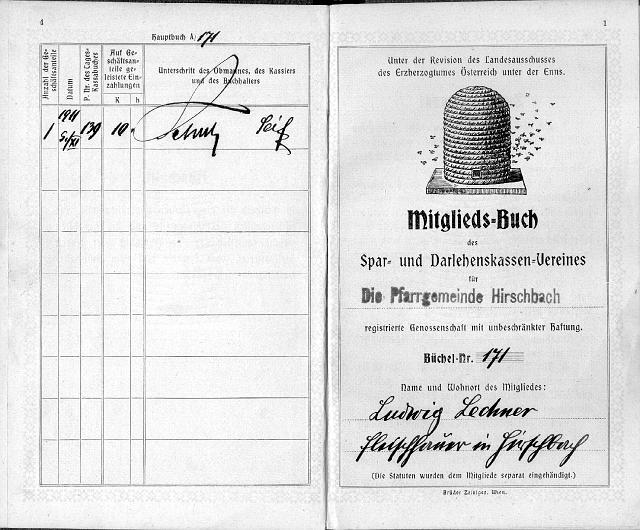 4
Hauptbuch A/ 171
Anzahl der Geschäftsanteile
Datum
P. Nr. des Tages-Kassabuches
Auf Ge-
schäftsan-
teile ge-
leistete Ein-
zahlungen
K h
Unterschrift des Obmannes, des Kassiers
und des Buchhalters
1 1911 139 10
1
Unter der Revision des Landesausschusses
des Erzherzogtumes Österreich unter der Enns.
Mitglieds-Buch
des
Spar- und Darlehenskassen-Vereines
für
Die Pfarrgemeinde Hirschbach
registrierte Genossenschaft mit unbeschränkter Haftung.
Büchel-Nr. 171
Name und Wohnort des Mitgliedes:
Ludwig Lechner
Fleischhauer in Hirschbach
(Die Statuten wurden dem Mitgliede separat eingehändigt.)